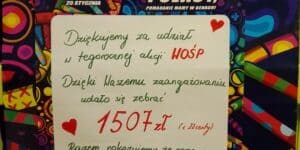 25 STYCZNIA
POMAGANIE MAMY W GENACH!
Dziękujemy za udział
w tegorocznej akcji WOŚP
Dzięki Waszemu zaangażowaniu
udało się zebrać
1507 zł
Razem pokazujemy że